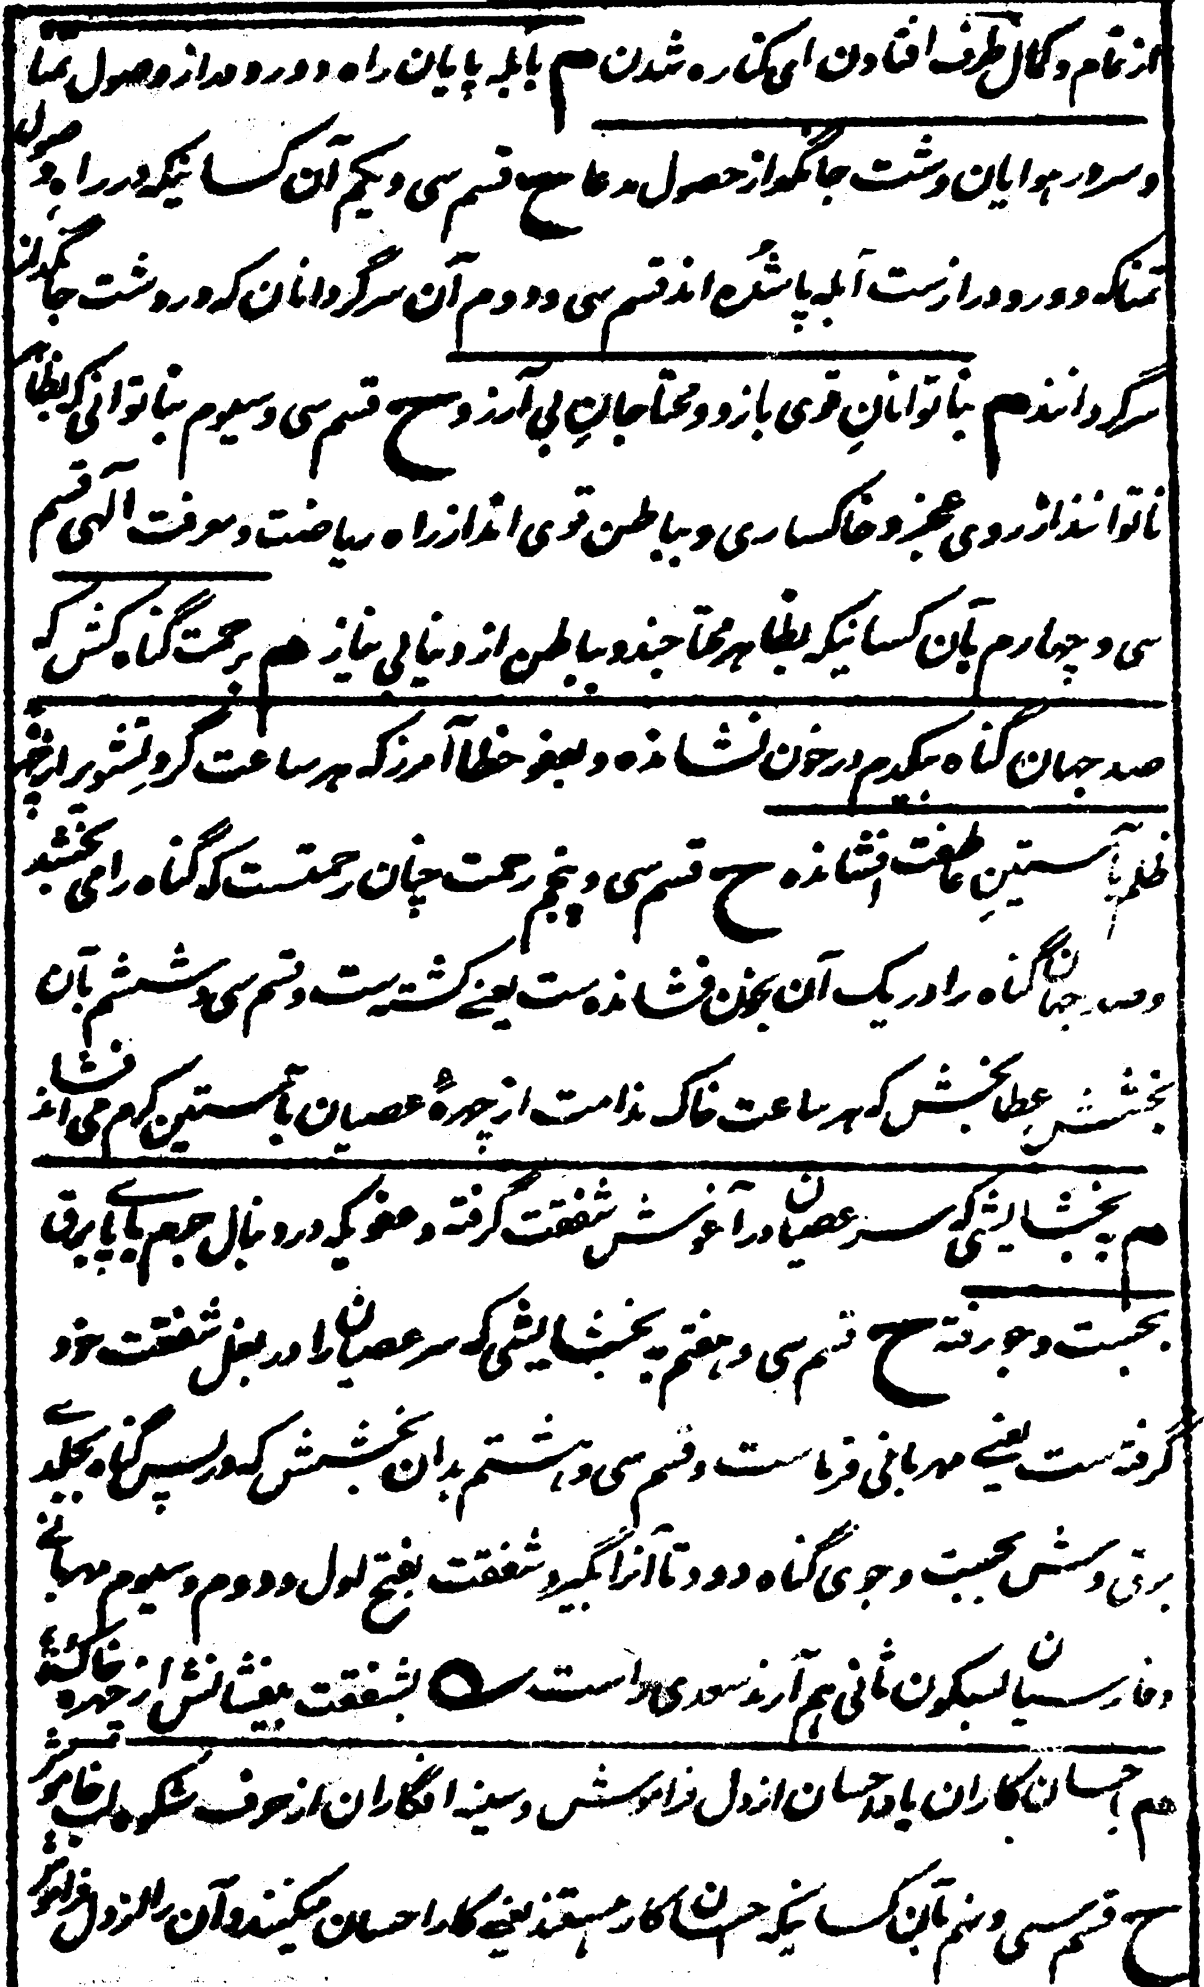 از تمام و کمال طرف افتادن ای کناره شدن م بآبله پایان راه دور و دراز وصول تمنا
و سرور هوایان دشت جانگداز حصول مدعا ح قسم سی و یکم آن کسانیکه در راهِ وصول
تمنا که دور و دراز ست آبله پا شده اند قسم سی و دوم آن سرگردانان که در دشت جانگداز
سرگردانند م بناتوانانِ قوی بازو و محتاجانِ بی آرزو ح قسم سی و سیوم بناتوانی که بظاهر
ناتوانند از روی عجز و خاکساری و بباطن قوی اند از راه ریاضت و معرفت الهی قسم
سی و چهارم بآن کسانیکه بظاهر محتاجند و بباطن از دنیا بی نیاز م برحمت گناه کش که
صد جهان گناه بیکدم در خون نشانده و بعفو خطا آمرز که هر ساعت گرد تشویر از
ظلم بآستینِ عاطفت افشانده ح قسم سی و پنجم رحمت چنان رحمتست که گناه را می بخشد
و صد جهان گناه را در یک آن بخون فشانده ست یعنے کشته ست و قسم سی و ششم بآن
بخشش عطا بخش که هر ساعت خاک ندامت از چهرهٔ عصیان بآستین کرم می افشاند
م ببخشایشی که سر عصیان در آغوش شفقت گرفته و عفویکه در دنبال جرم بپای برق
بجست و جو رفته ح قسم سی و هفتم به بخشایشی که سر عصیان را در بغل شفقت خود
گرفته ست یعنے مهربانی فرماست و قسم سی و هشتم بدان بخشش که در پس گناه بجلدی
برق وش بجست و جوی گناه دود تا آنرا بگیرد شفقت بفتح اول و دوم و سیوم مهربانے
و فارسیان بسکون ثانی هم آرند سعدی راست بشفقت بیفشانش از چهره خاک
م باحسان کاران یاد احسان از دل فراموش و سینه افگاران از حرف شکوه لب خاموش
ح قسم سی و نهم بآن کسانیکه احسان کار هستند یعنے کار احسان میکنند و آن را از دل فراموش